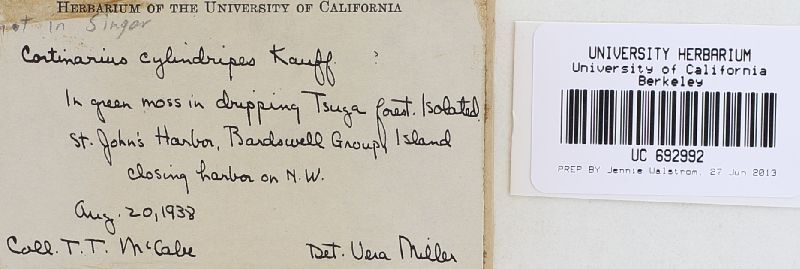 HERBARIUM OF THE UNIVERSITY OF CALIFORNIA
not in Singer
Cortinarius cylindripes Kauff. ?
In green moss in dripping Tsuga forest. Isolated.
St. John's Harbor, Bardswell Group, Island
closing harbor on N.W.
Aug. 20, 1938
Coll. T. T. McCabe
Det. Vera Miller
UNIVERSITY HERBARIUM
University of California
Berkeley
UC 692992
PREP BY Jennie Walstrom, 27 Jun 2013